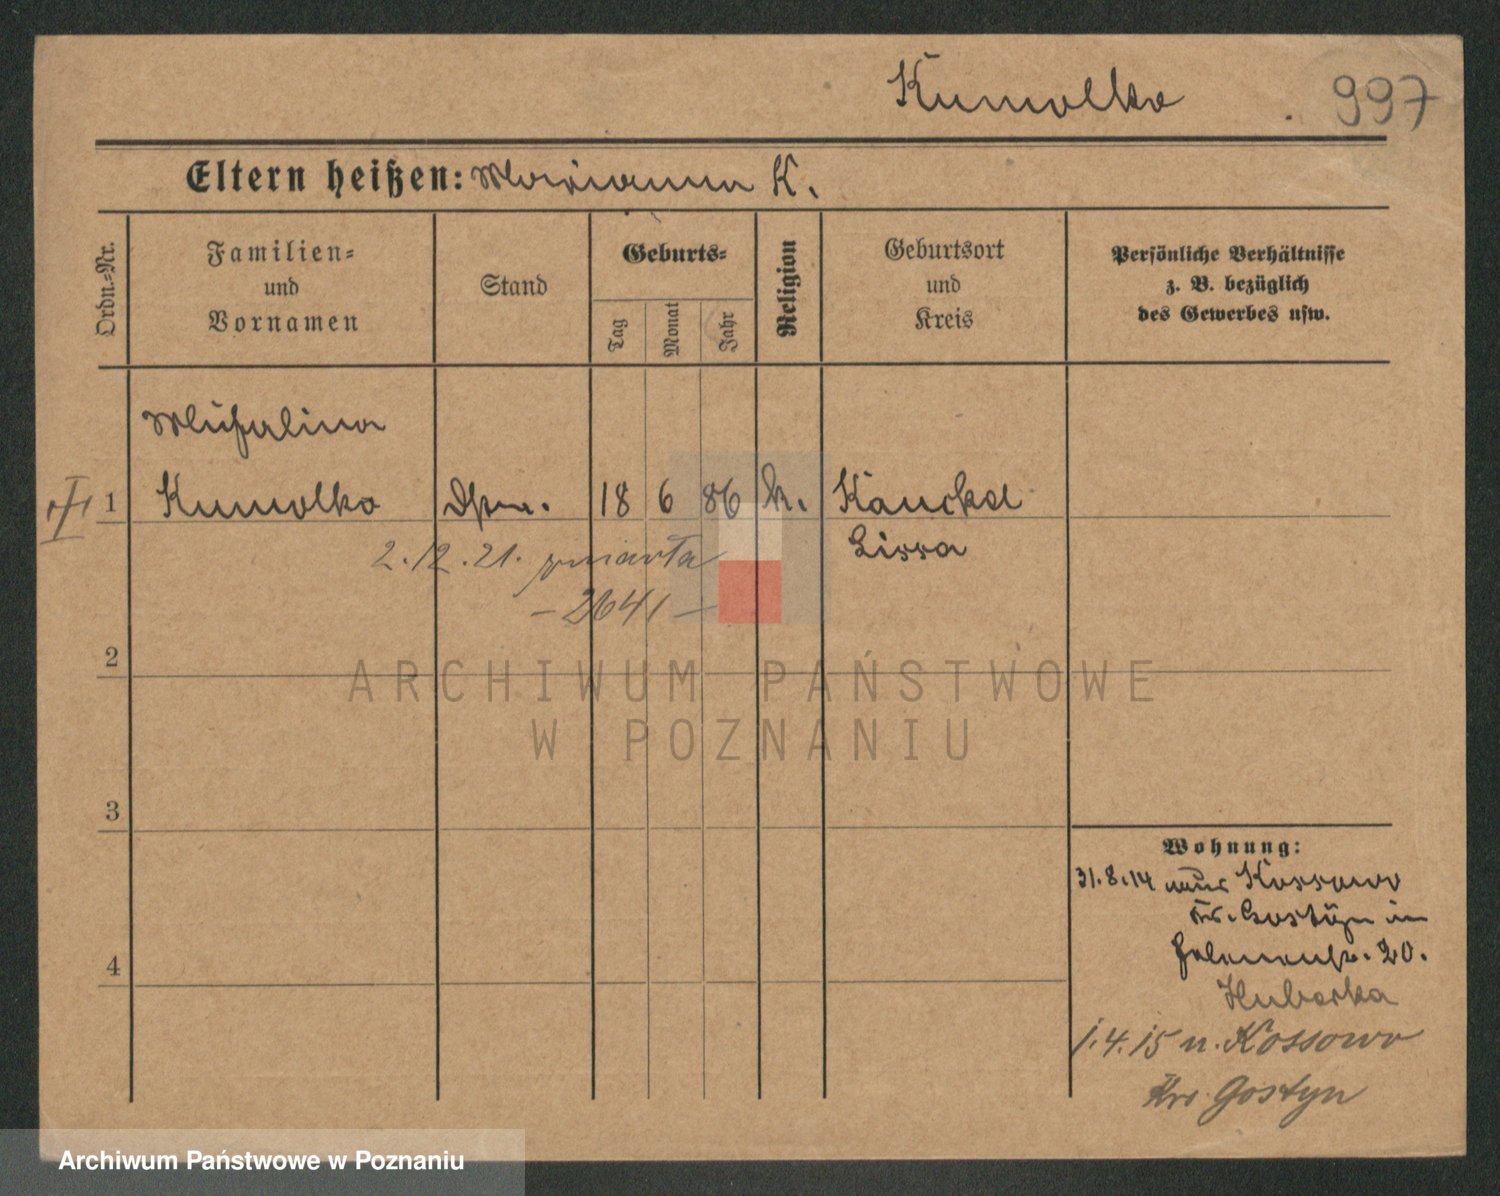 Kumolka
997
Eltern heißen: Marianna K.
Ordn.=Nr.
Familien=
und
Vornamen
Stand
Geburts=
Tag
Monat
Jahr
Religion
Geburtsort
und
Kreis
Persönliche Verhältnisse
z. B. bezüglich
des Gewerbes usw.
1
Kumolka
18 6 86 k. Kanckel
Lissa
2.12.21. zmarła
– 2641 –
2
3
4
ARCHIWUM PAŃSTWOWE
W POZNANIU
Wohnung:
31.8.14 aus Kossowo
Kr. Gostÿn in
20.
Huberka
1.4.15 n. Kossowo
Krs. Gostyn
Archiwum Państwowe w Poznaniu